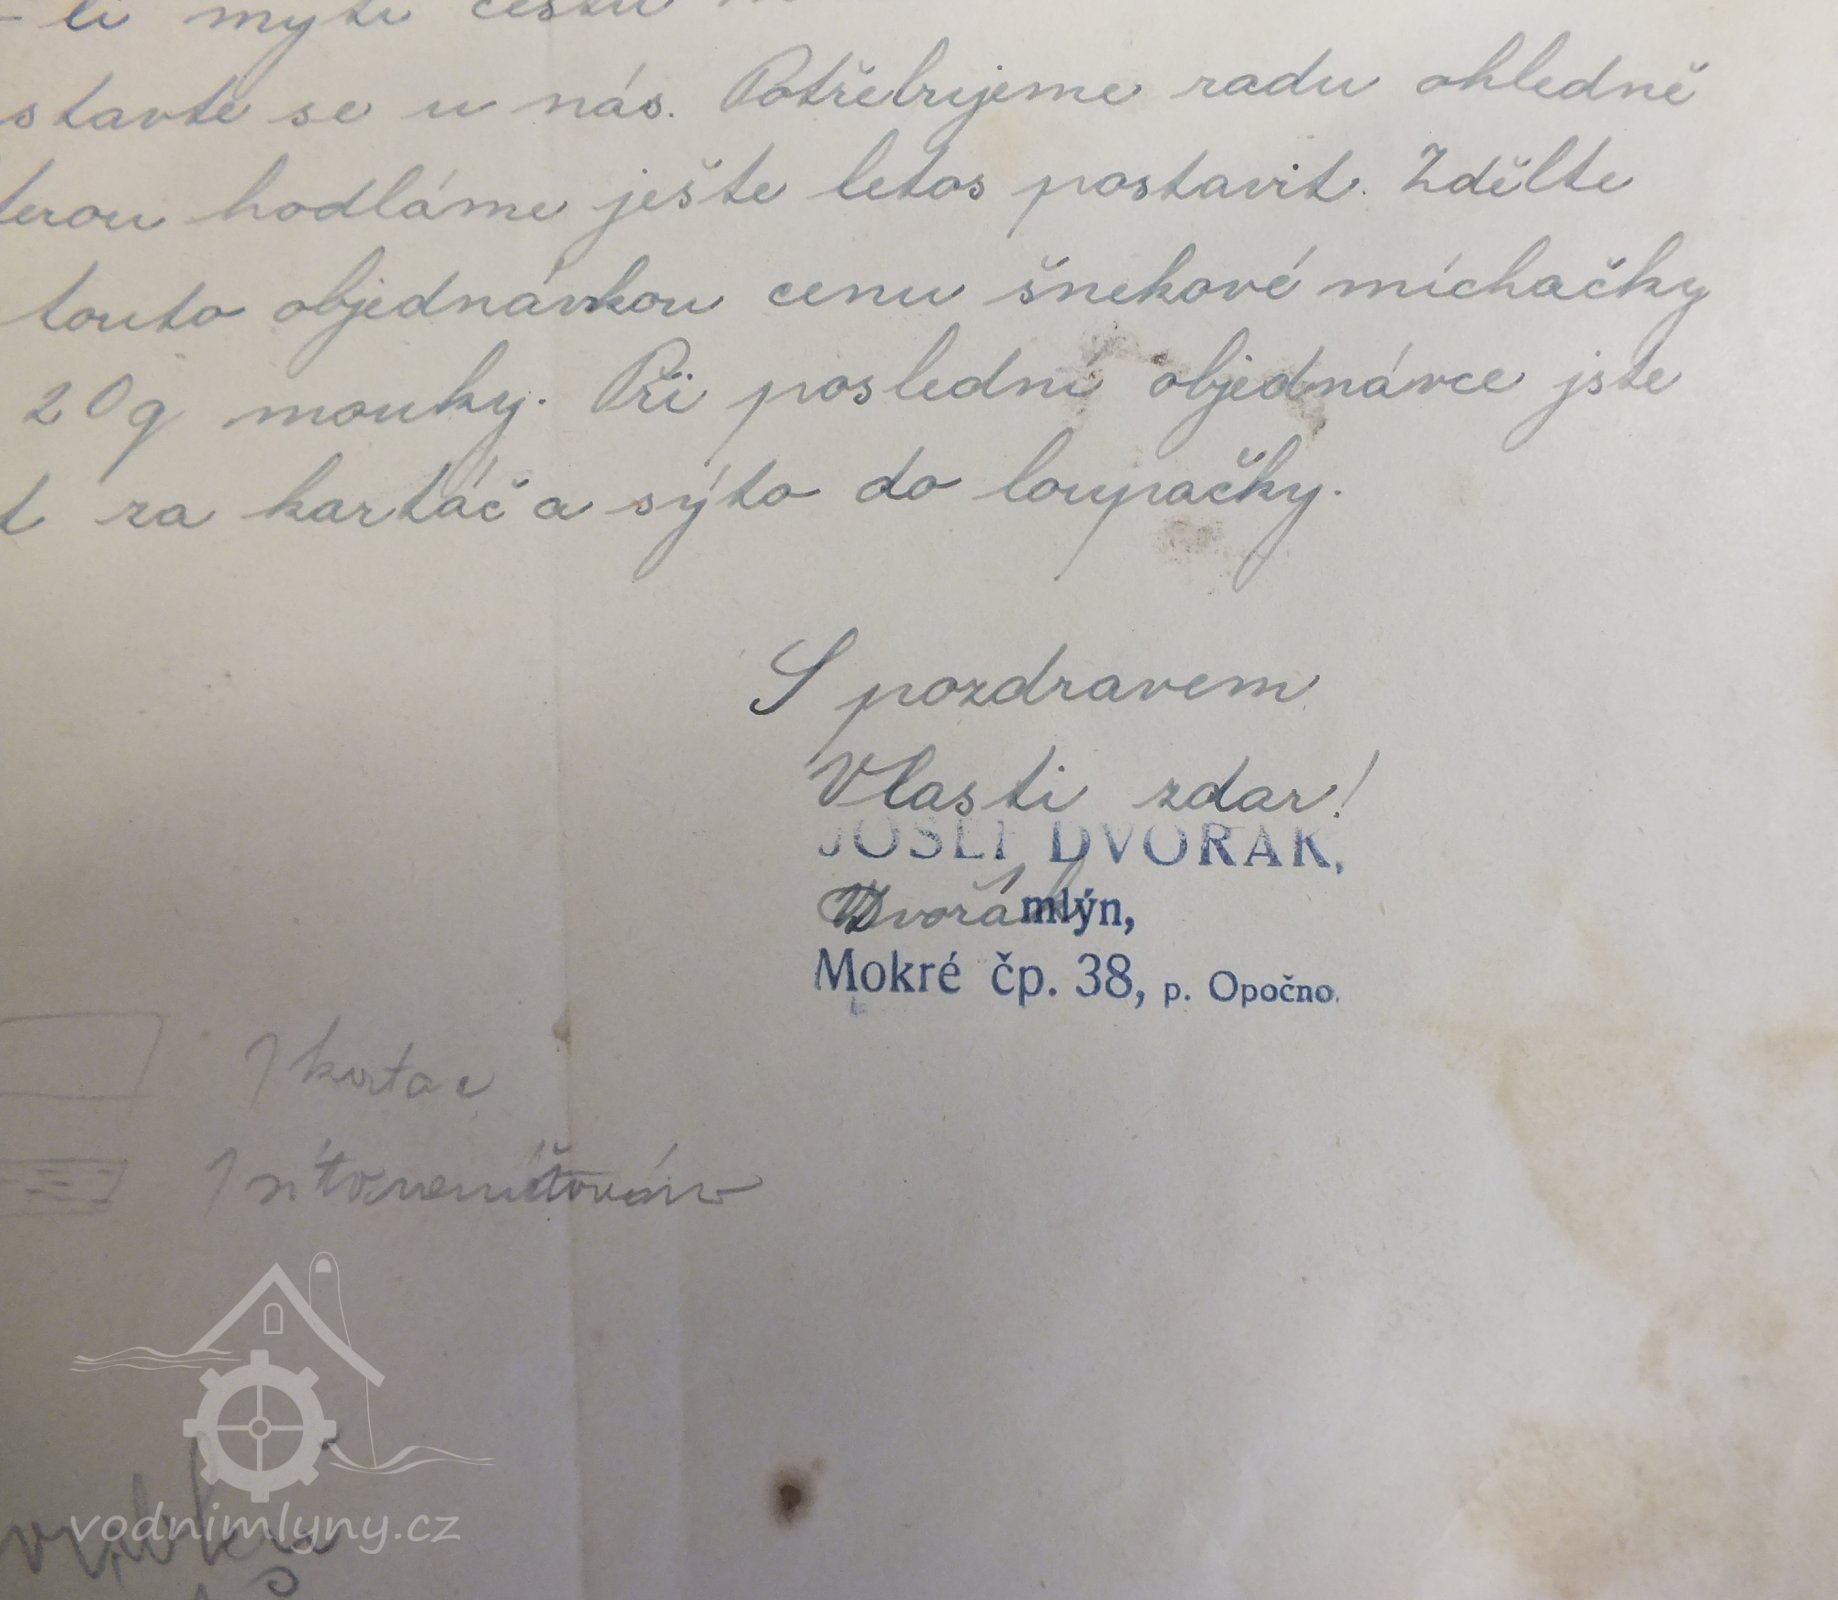 -li mýti cestu
stavte se u nás. Potřebujeme radu ohledně
terou hodláme ješte letos postavit. Zdělte
touto objednávkou cenu šnekové míchačky
20 q mouky. Při poslední objednávce jste
t za kartáč a sýto do loupačky.
S pozdravem
Vlasti zdar!
JOSEF DVOŘÁK,
Dvořák
mlýn,
Mokré čp. 38, p. Opočno.
1 kartac
vodnimlyny.cz